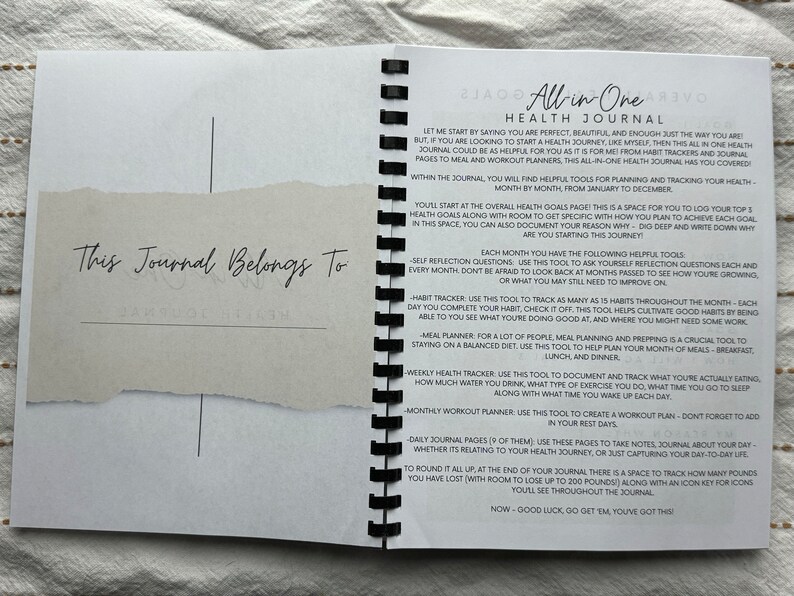 This Journal Belongs To
All-in-One
HEALTH JOURNAL
LET ME START BY SAYING YOU ARE PERFECT, BEAUTIFUL, AND ENOUGH JUST THE WAY YOU ARE!
BUT, IF YOU ARE LOOKING TO START A HEALTH JOURNEY, LIKE MYSELF, THEN THIS ALL IN ONE HEALTH
JOURNAL COULD BE AS HELPFUL FOR YOU AS IT IS FOR ME! FROM HABIT TRACKERS AND JOURNAL
PAGES TO MEAL AND WORKOUT PLANNERS, THIS ALL-IN-ONE HEALTH JOURNAL HAS YOU COVERED!
WITHIN THE JOURNAL, YOU WILL FIND HELPFUL TOOLS FOR PLANNING AND TRACKING YOUR HEALTH -
MONTH BY MONTH, FROM JANUARY TO DECEMBER.
YOU'LL START AT THE OVERALL HEALTH GOALS PAGE! THIS IS A SPACE FOR YOU TO LOG YOUR TOP 3
HEALTH GOALS ALONG WITH ROOM TO GET SPECIFIC WITH HOW YOU PLAN TO ACHIEVE EACH GOAL.
IN THIS SPACE, YOU CAN ALSO DOCUMENT YOUR REASON WHY - DIG DEEP AND WRITE DOWN WHY
ARE YOU STARTING THIS JOURNEY!
EACH MONTH YOU HAVE THE FOLLOWING HELPFUL TOOLS:
-SELF REFLECTION QUESTIONS: USE THIS TOOL TO ASK YOURSELF REFLECTION QUESTIONS EACH AND
EVERY MONTH. DON'T BE AFRAID TO LOOK BACK AT MONTHS PASSED TO SEE HOW YOU'RE GROWING,
OR WHAT YOU MAY STILL NEED TO IMPROVE ON.
-HABIT TRACKER: USE THIS TOOL TO TRACK AS MANY AS 15 HABITS THROUGHOUT THE MONTH - EACH
DAY YOU COMPLETE YOUR HABIT, CHECK IT OFF. THIS TOOL HELPS CULTIVATE GOOD HABITS BY BEING
ABLE TO YOU SEE WHAT YOU'RE DOING GOOD AT, AND WHERE YOU MIGHT NEED SOME WORK.
-MEAL PLANNER: FOR A LOT OF PEOPLE, MEAL PLANNING AND PREPPING IS A CRUCIAL TOOL TO
STAYING ON A BALANCED DIET. USE THIS TOOL TO HELP PLAN YOUR MONTH OF MEALS - BREAKFAST,
LUNCH, AND DINNER.
-WEEKLY HEALTH TRACKER: USE THIS TOOL TO DOCUMENT AND TRACK WHAT YOU'RE ACTUALLY EATING,
HOW MUCH WATER YOU DRINK, WHAT TYPE OF EXERCISE YOU DO, WHAT TIME YOU GO TO SLEEP
ALONG WITH WHAT TIME YOU WAKE UP EACH DAY.
-MONTHLY WORKOUT PLANNER: USE THIS TOOL TO CREATE A WORKOUT PLAN - DON'T FORGET TO ADD
IN YOUR REST DAYS.
-DAILY JOURNAL PAGES (9 OF THEM): USE THESE PAGES TO TAKE NOTES, JOURNAL ABOUT YOUR DAY -
WHETHER ITS RELATING TO YOUR HEALTH JOURNEY, OR JUST CAPTURING YOUR DAY-TO-DAY LIFE.
TO ROUND IT ALL UP, AT THE END OF YOUR JOURNAL THERE IS A SPACE TO TRACK HOW MANY POUNDS
YOU HAVE LOST (WITH ROOM TO LOSE UP TO 200 POUNDS!) ALONG WITH AN ICON KEY FOR ICONS
YOU'LL SEE THROUGHOUT THE JOURNAL.
NOW - GOOD LUCK, GO GET 'EM, YOU'VE GOT THIS!